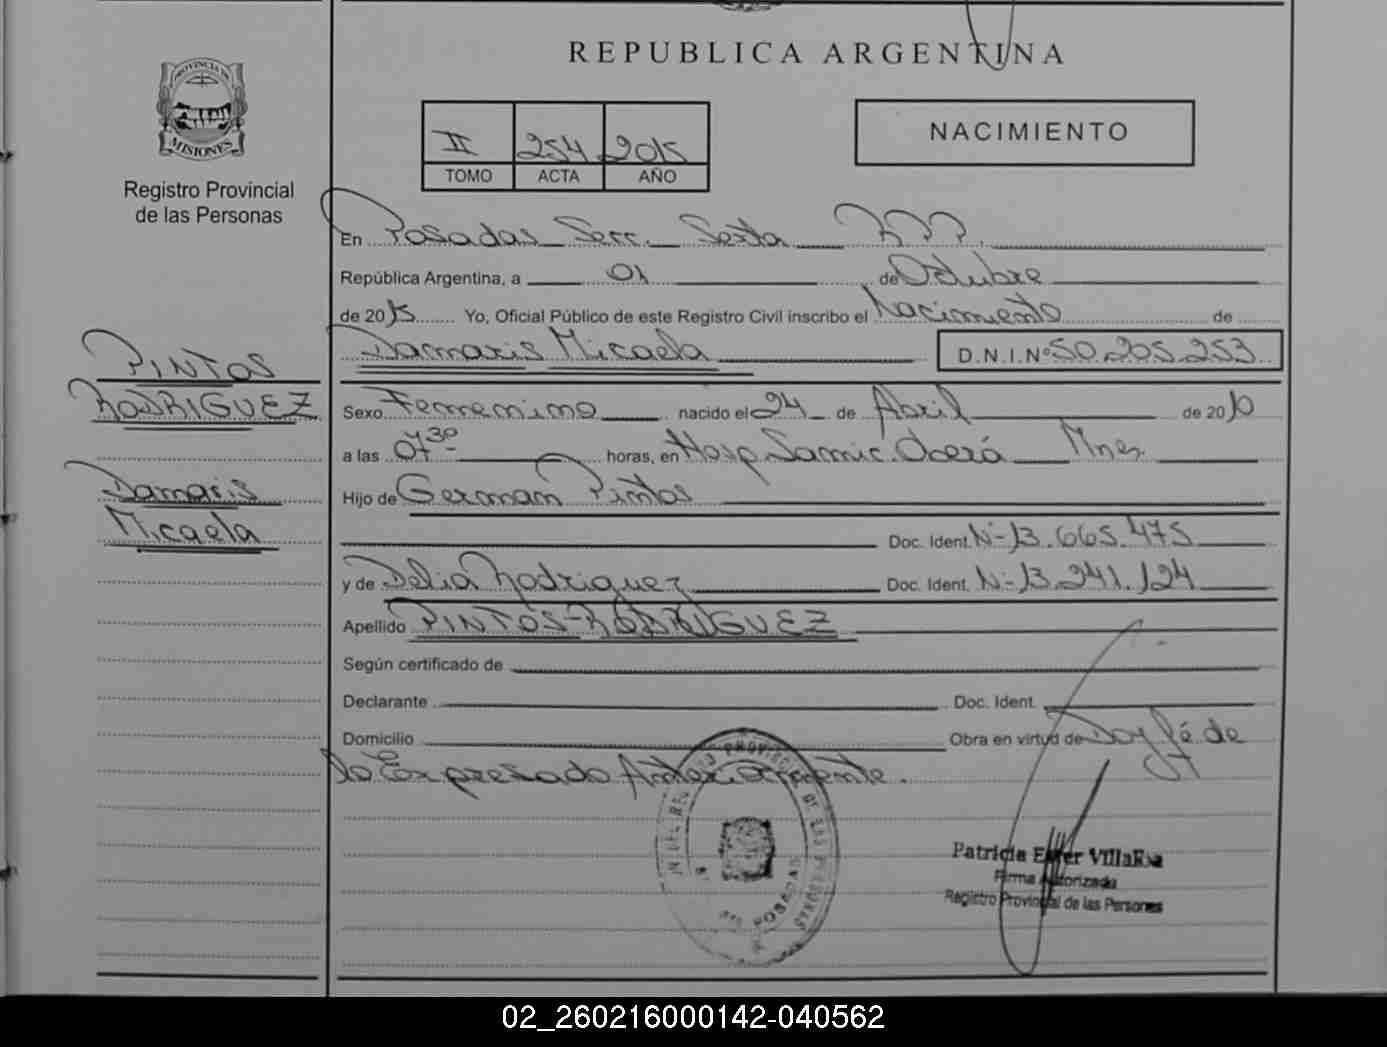 REPUBLICA ARGENTINA
PROVINCIA DE
MISIONES
Registro Provincial
de las Personas
II 254 2015
TOMO ACTA AÑO
NACIMIENTO
En Posadas Secc. Sexta
República Argentina, a 01 de Octubre
de 2015 Yo, Oficial Público de este Registro Civil inscribo el Nacimiento de
Damaris Micaela D.N.I.Nº 50.205.253
PINTOS
RODRIGUEZ
Damaris
Micaela
Sexo Femenino nacido el 24 de Abril de 2010
a las 07 30 horas, en Hosp. Samic. Oberá Mnes.
Hijo de German Pintos
Doc. Ident. Nº 13.665.475
y de Delia Rodriguez Doc. Ident. Nº 13.241.124
Apellido PINTOS-RODRIGUEZ
Según certificado de
Declarante Doc. Ident.
Domicilio Obra en virtud de Doy fé de
lo Expresado Anteriormente.
POSADAS
Patricia Ester Villalba
Firma Autorizada
Registro Provincial de las Personas
02_260216000142-040562